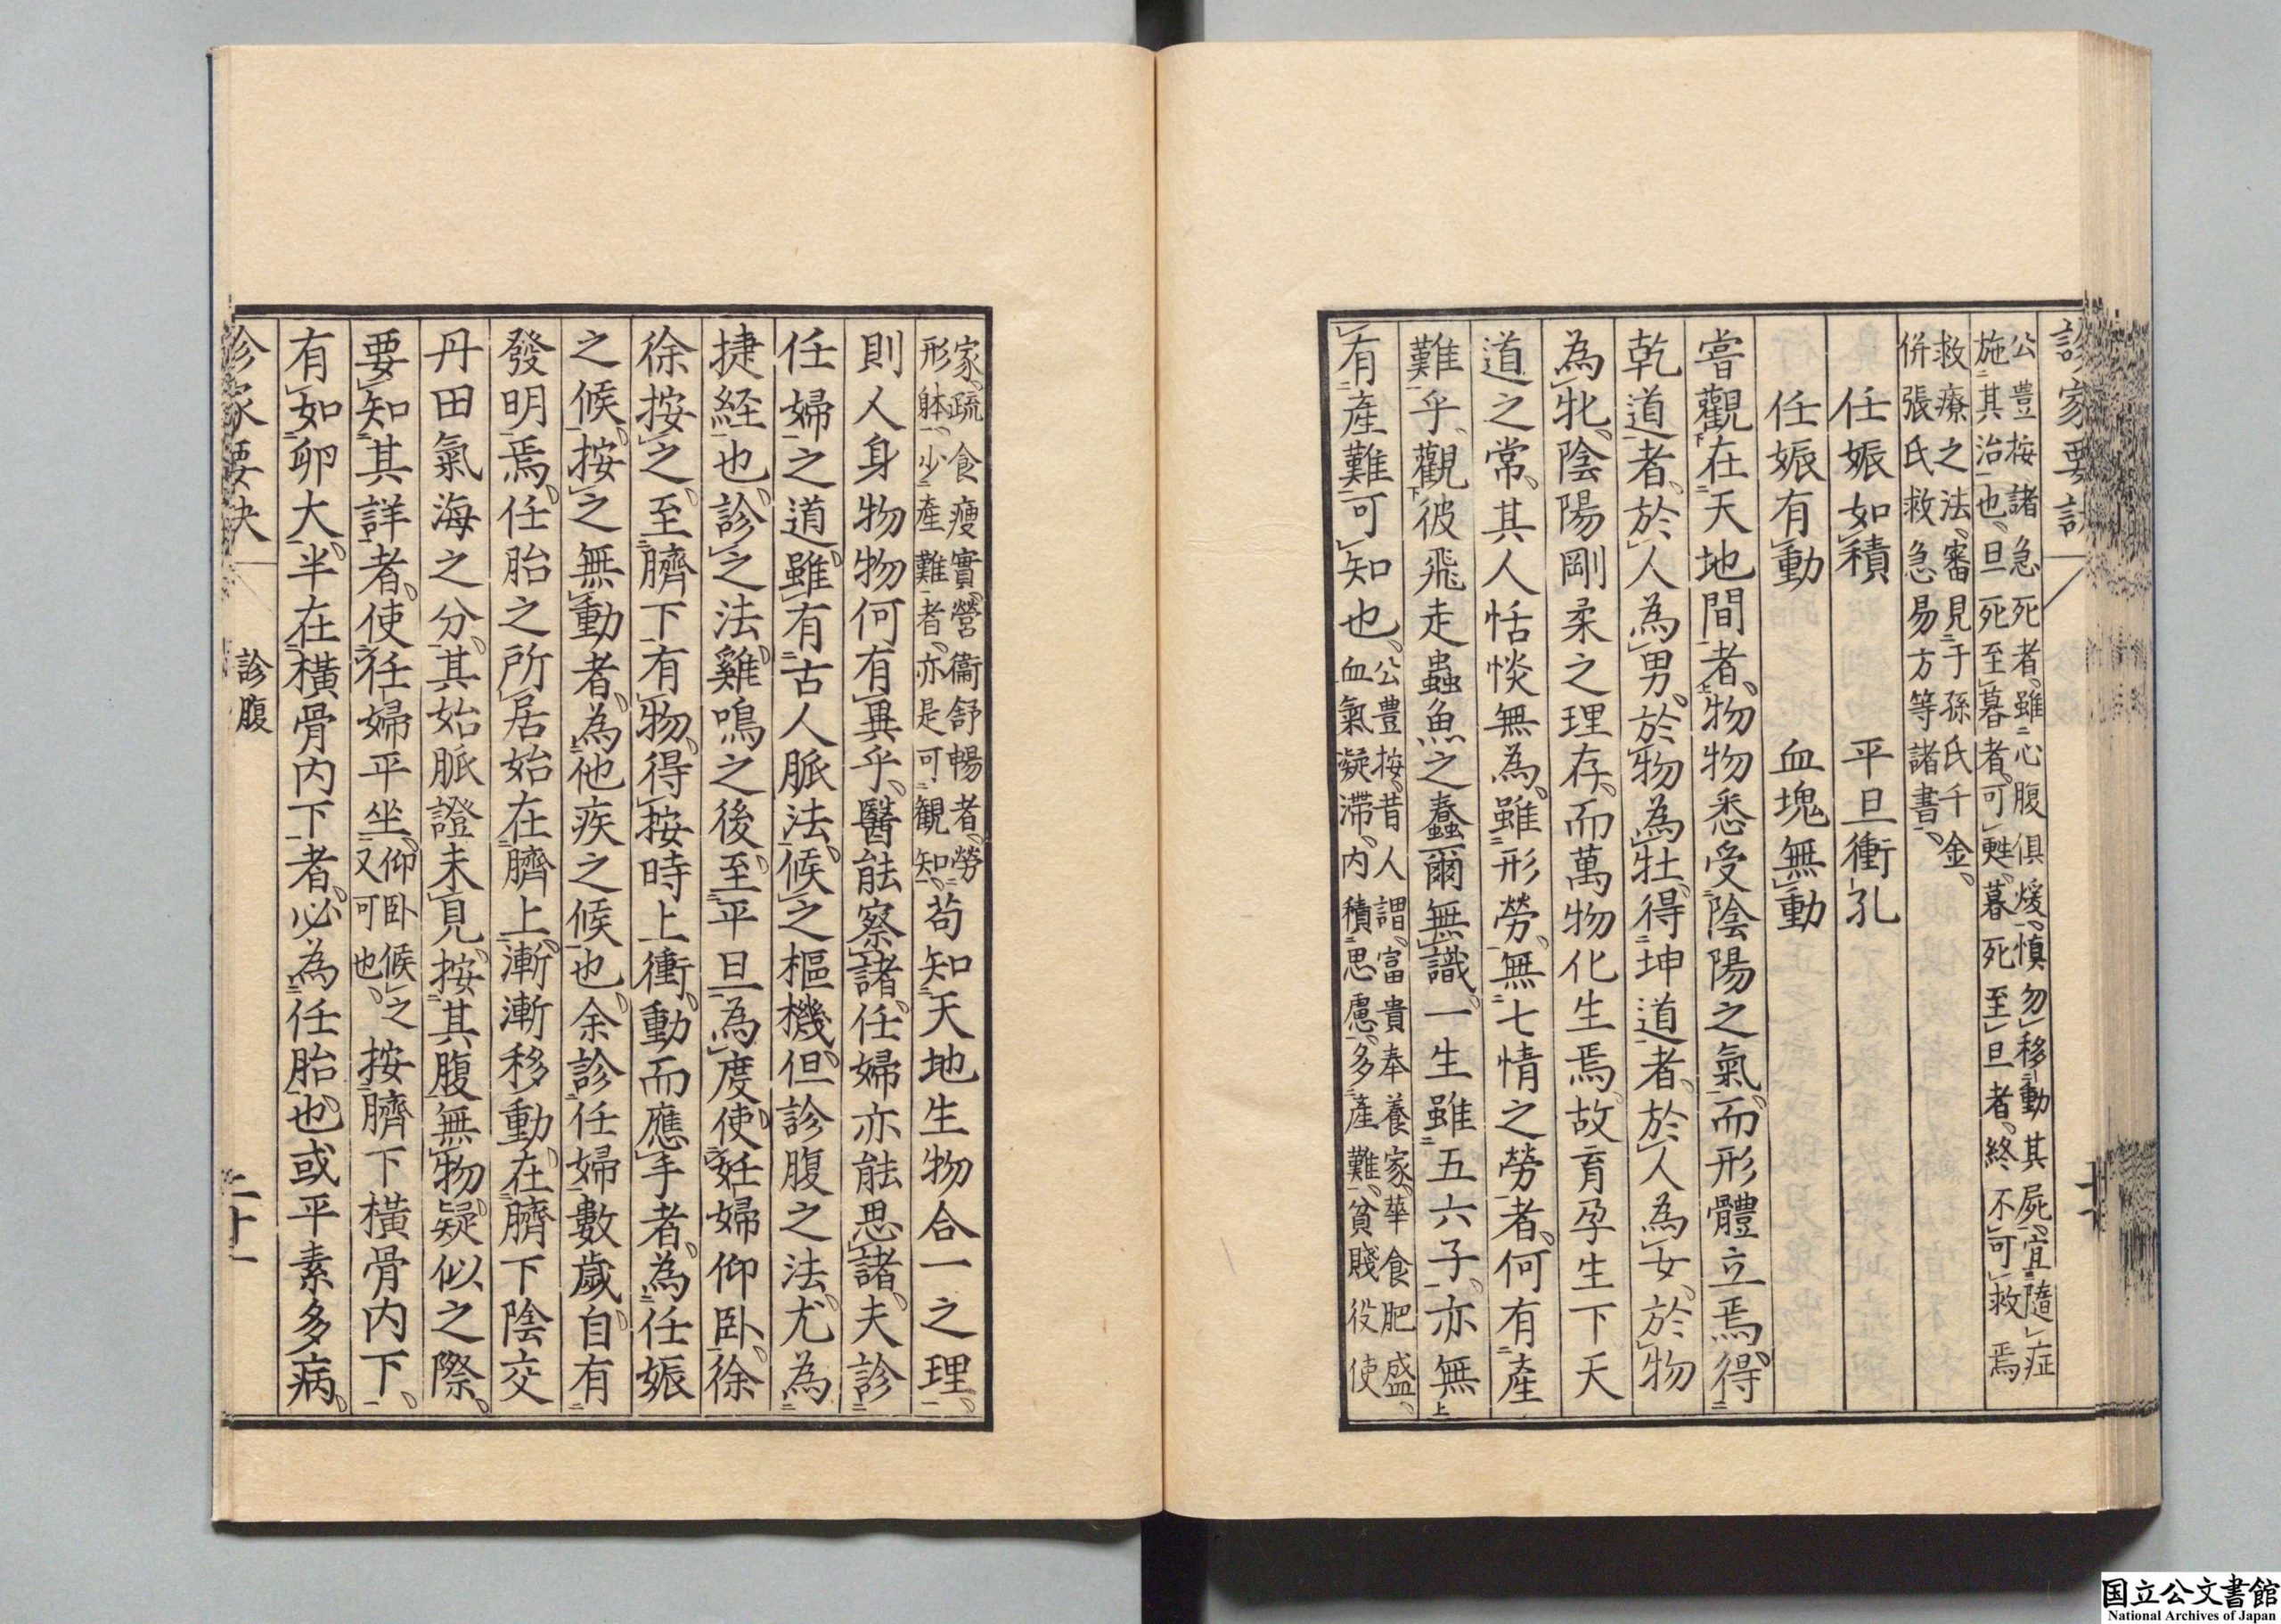 診家要訣
公豊按諸急死者雖心腹俱煖慎勿移動其屍宜隨症
施其治也旦死至暮者可甦暮死至旦者終不可救焉
救療之法審見于孫氏千金
併張氏救急易方等諸書
任娠如積　平旦衝孔
任娠有動　血塊無動
嘗觀在天地間者物物悉受陰陽之氣而形體立焉得
乾道者於人為男於物為牡得坤道者於人為女於物
為牝陰陽剛柔之理存而萬物化生焉故育孕生下天
道之常其人恬惔無為雖形勞無七情之勞者何有産
難乎觀彼飛走蟲魚之蠢爾無識一生雖五六子亦無
有産難可知也公豊按昔人謂富貴奉養家華食肥盛
血氣凝滞内積思慮多産難貧賤役使
家疏食瘦實營衞舒暢者勞
形躰少産難者亦是可観知苟知天地生物合一之理
則人身物物何有異乎醫能察諸任婦亦能思諸夫診
任婦之道雖有古人脈法候之樞機但診腹之法尤為
捷経也診之法雞鳴之後至平旦為度使妊婦仰卧徐
徐按之至臍下有物得按時上衝動而應手者為任娠
之候按之無動者為他疾之候也余診任婦數歲自有
發明焉任胎之所居始在臍上漸漸移動在臍下陰交
丹田氣海之分其始脈證未見按其腹無物疑似之際
要知其詳者使任婦平坐仰卧候之
又可也按臍下橫骨内下
有如卵大半在橫骨内下者必為任胎也或平素多病
診家要決
診腹
二十一
国立公文書館
National Archives of Japan